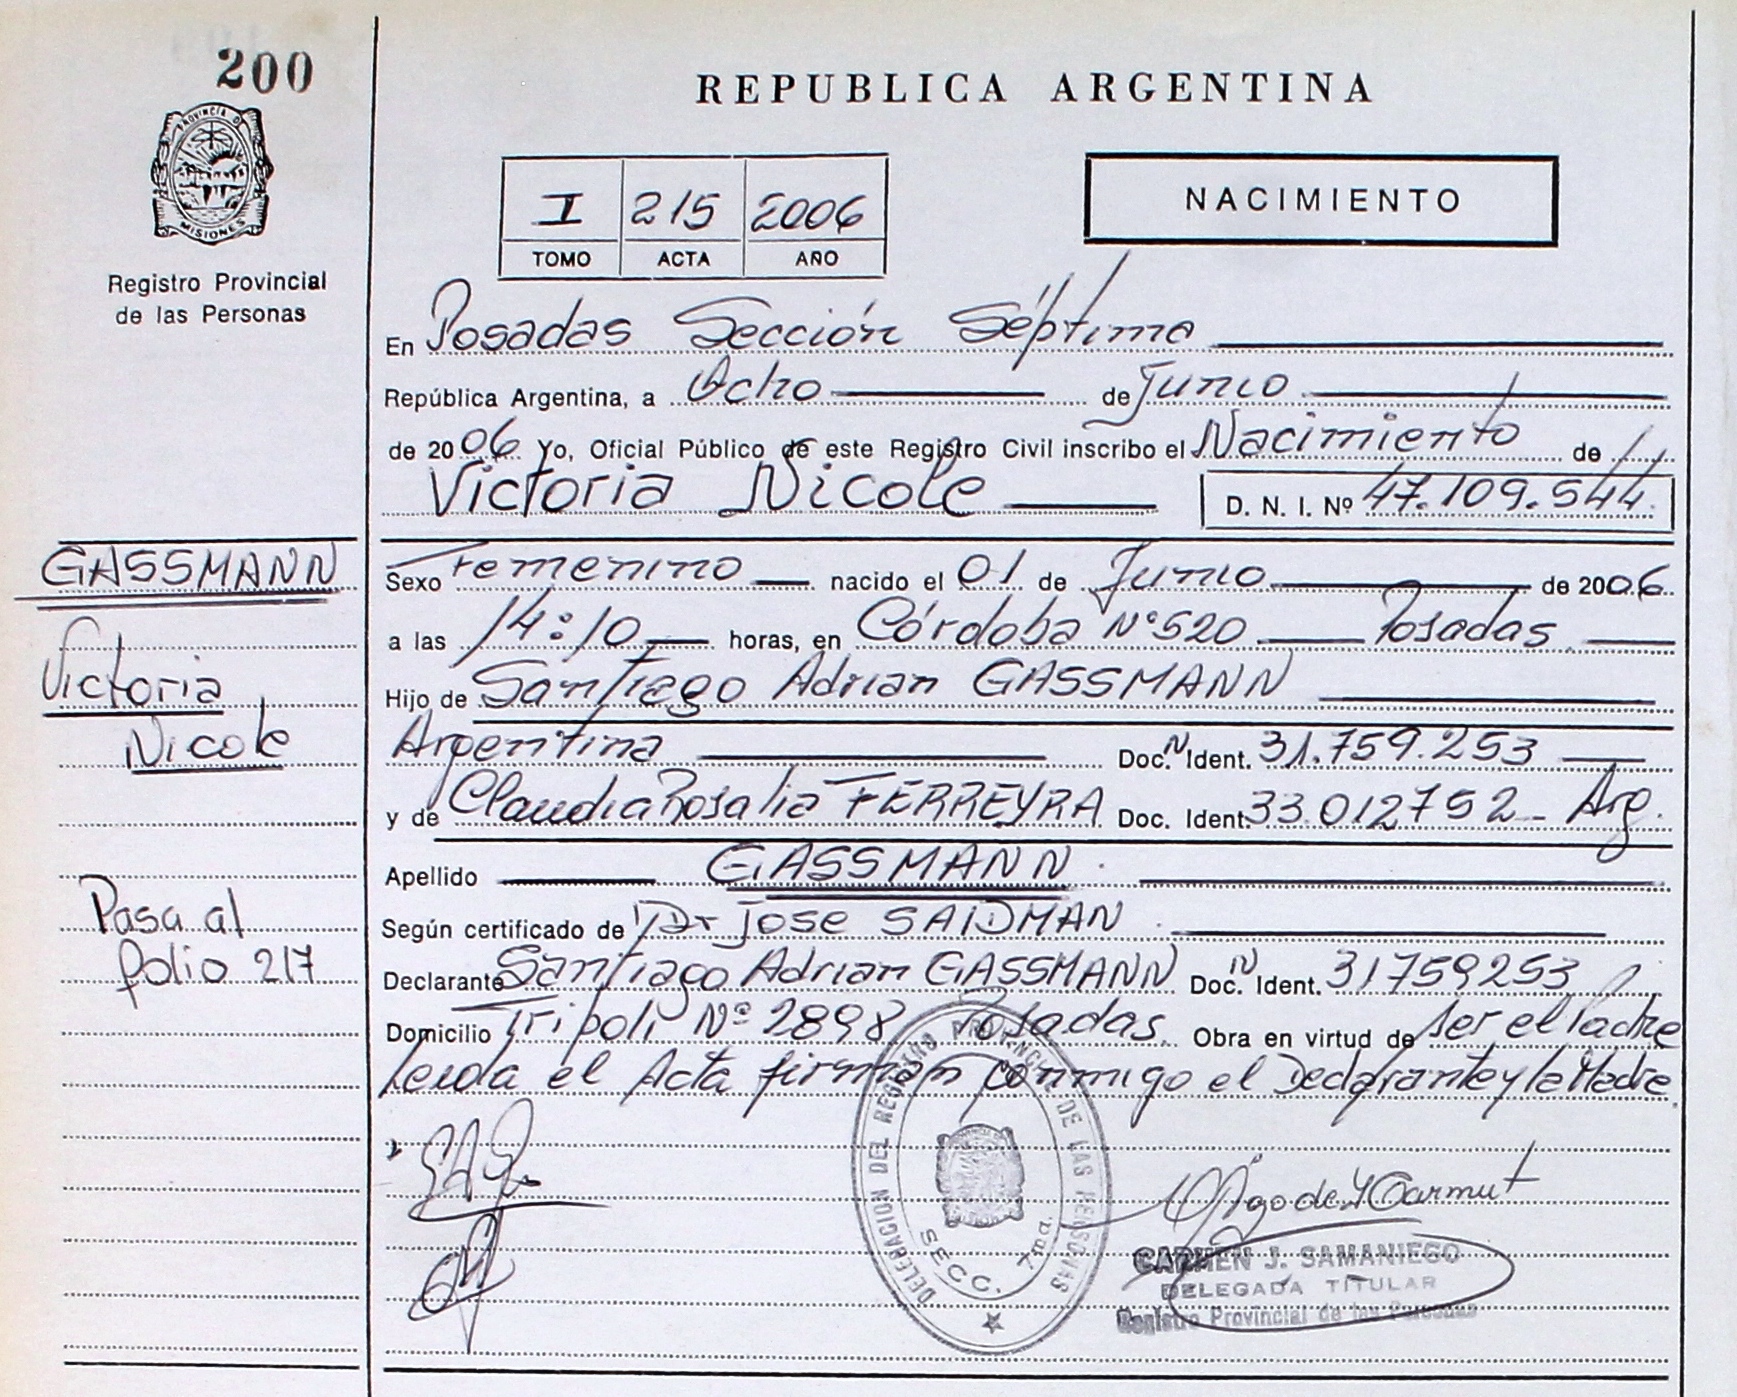 200
PROVINCIA DE
MISIONES
Registro Provincial
de las Personas
GASSMANN
Victoria
Nicole
Pasa al
folio 217
REPUBLICA ARGENTINA
I 215 2006
TOMO ACTA AÑO
NACIMIENTO
En Posadas Sección Séptima
República Argentina, a Ocho de Junio
de 2006 Yo, Oficial Público de este Registro Civil inscribo el Nacimiento de
Victoria Nicole D. N. I. Nº 47.109.544.
Sexo Femenino nacido el 01 de Junio de 2006.
a las 14:10 horas, en Córdoba Nº 520 Posadas
Hijo de Santiago Adrian GASSMANN
Argentina Doc. N. Ident. 31.759.253
y de Claudia Rosalia FERREYRA Doc. Ident. 33.012752 - Arg.
Apellido GASSMANN.
Según certificado de Dr Jose SAIDMAN
Declarante Santiago Adrian GASSMANN Doc. N. Ident. 31759253
Domicilio Tripoli Nº 2898 Posadas. Obra en virtud de ser el Padre
Leida el Acta firman conmigo el Declarante y la Madre.
DELEGACION DEL REGISTRO PROVINCIAL DE LAS PERSONAS
SECC. 7ma.
CARMEN J. SAMANIEGO
DELEGADA TITULAR
Registro Provincial de las Personas